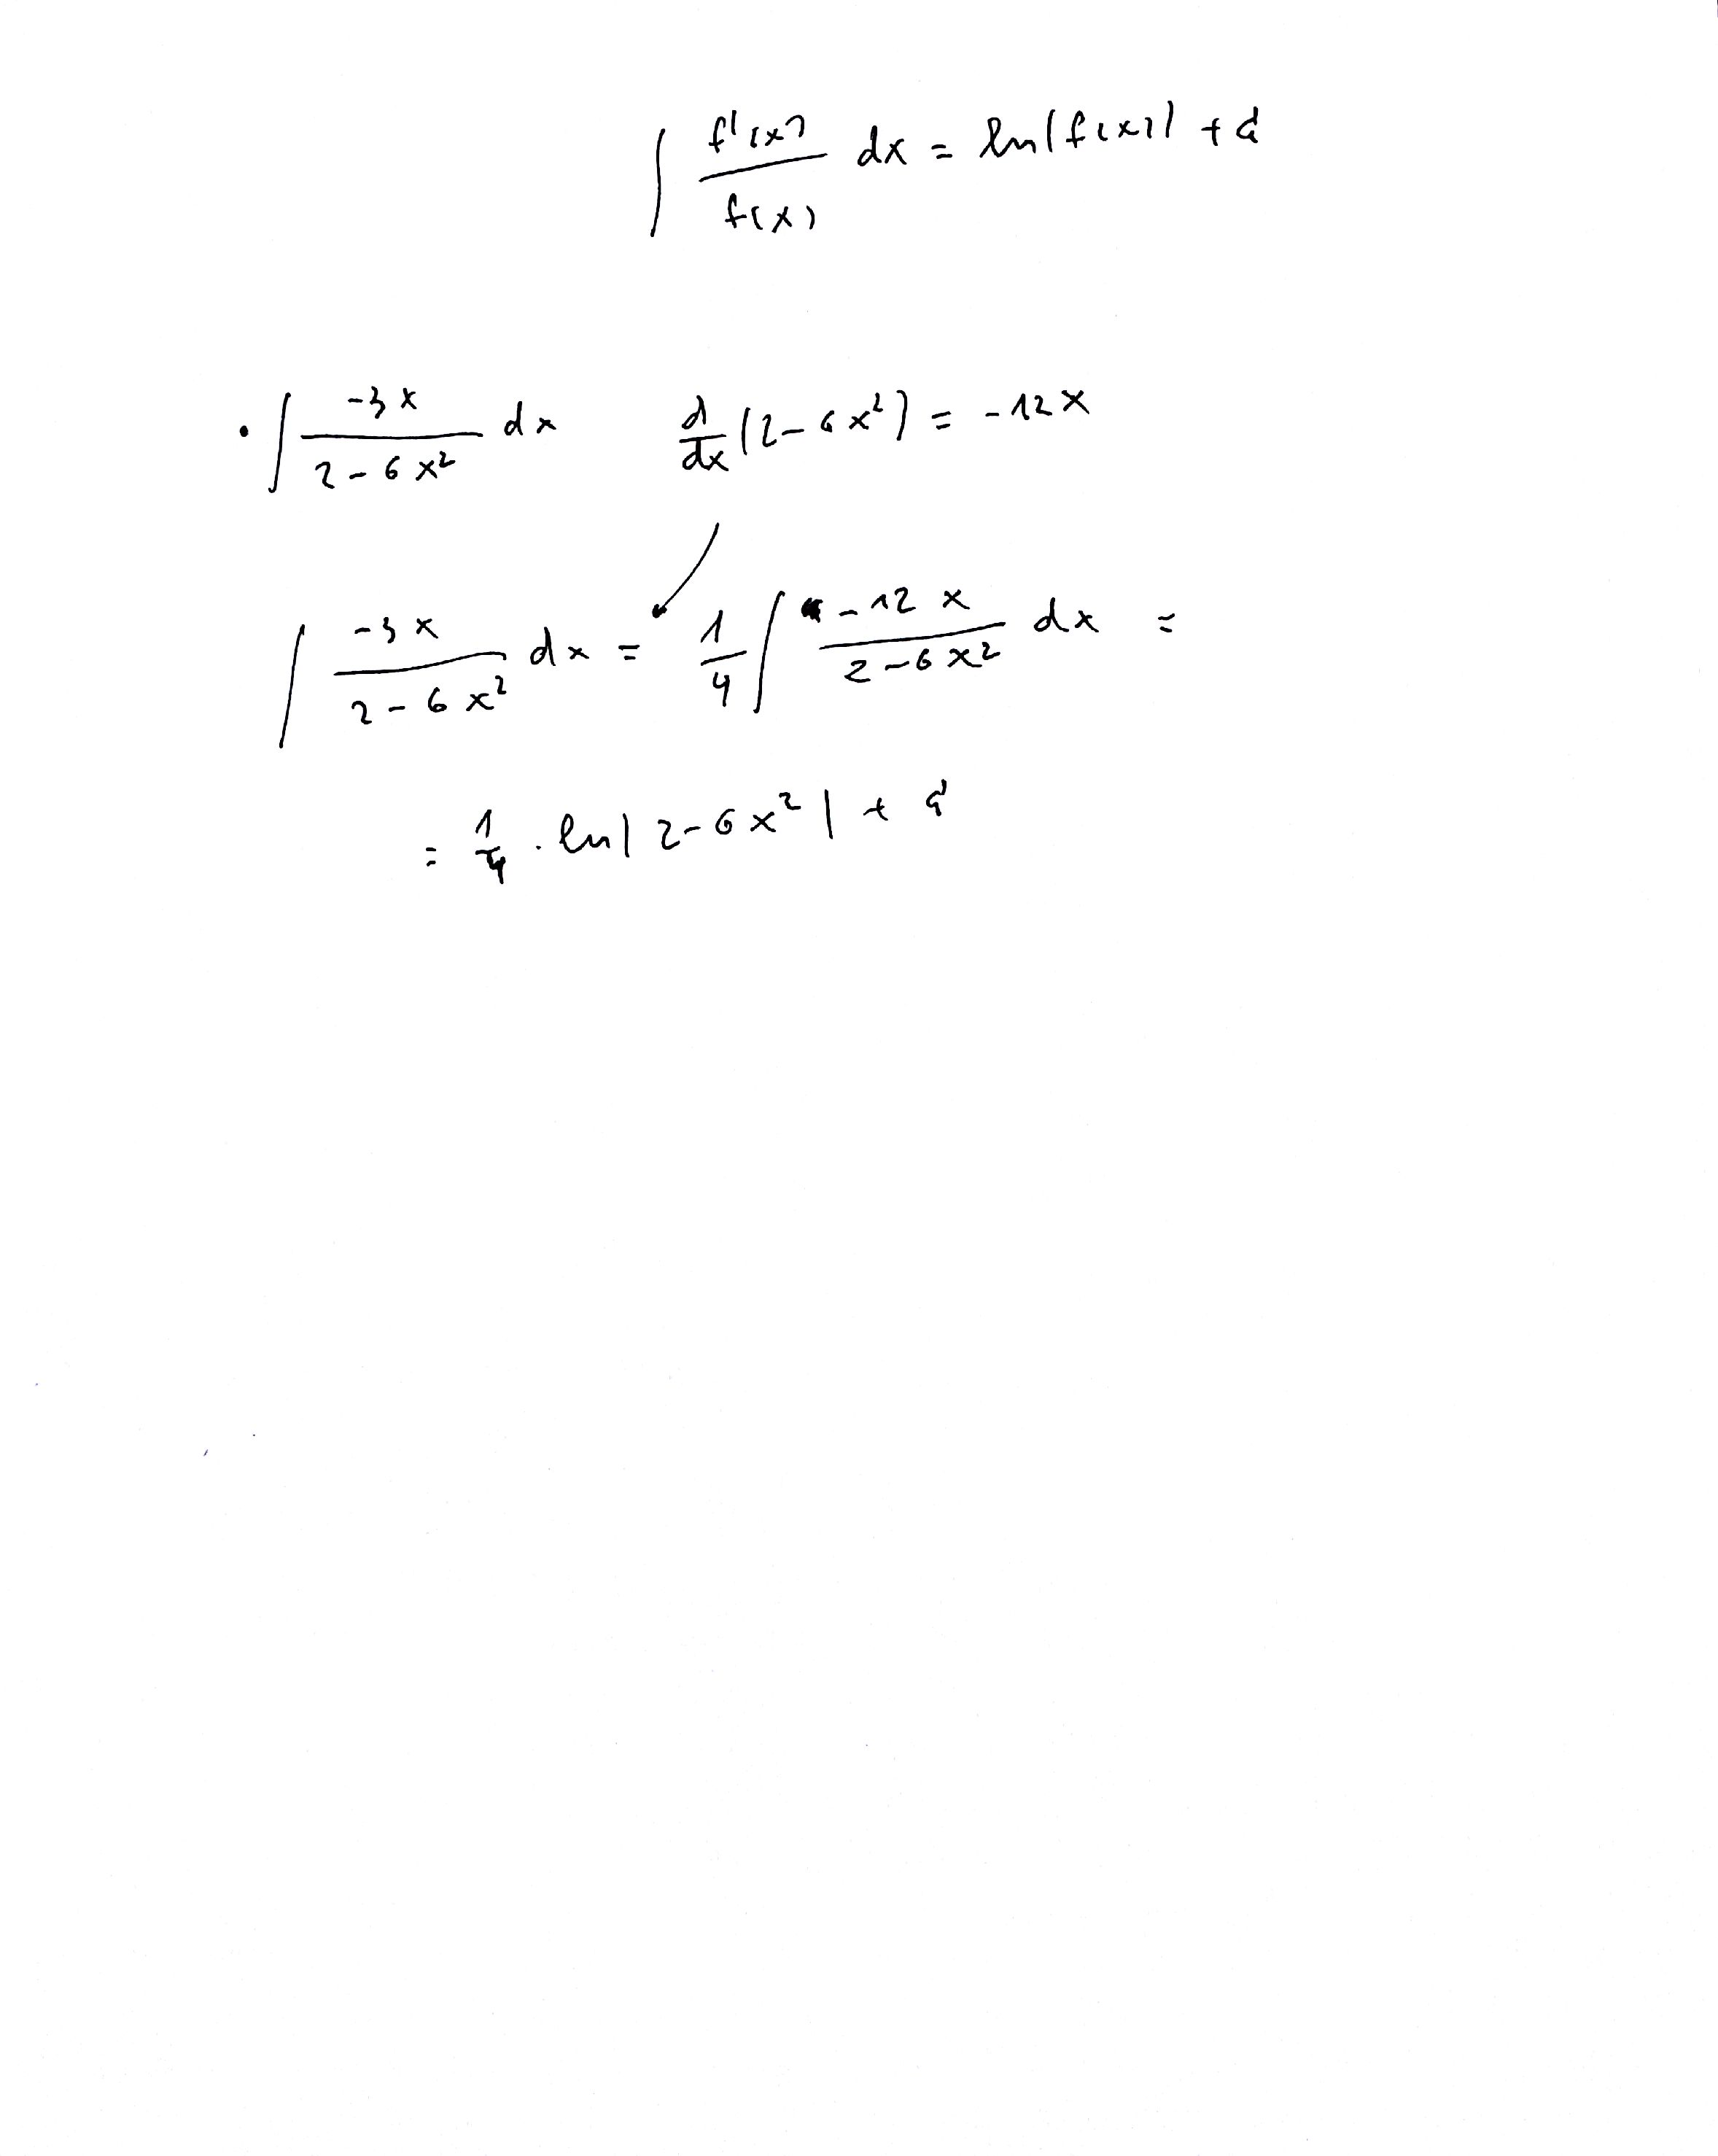 ∫ f'(x)/f(x) dx = ln|f(x)| + C
• ∫ -3x/(2-6x²) dx   d/dx (2-6x²) = -12x
∫ -3x/(2-6x²) dx = 1/4 ∫ -12x/(2-6x²) dx =
= 1/4 · ln|2-6x²| + C